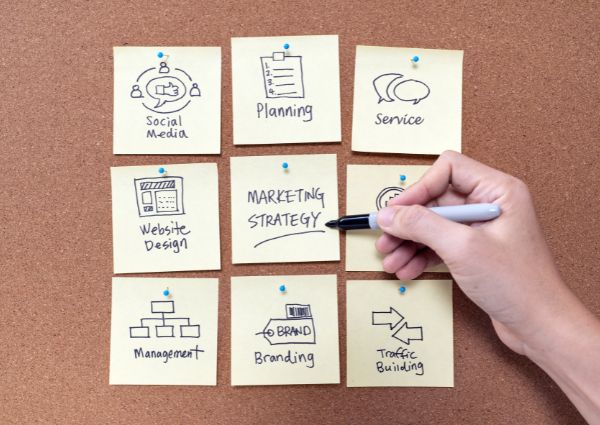 Social
Media
1.
2.
3.
4.
Planning
Service
Website
Design
MARKETING
STRATEGY
Management
BRAND
Branding
Traffic
Building